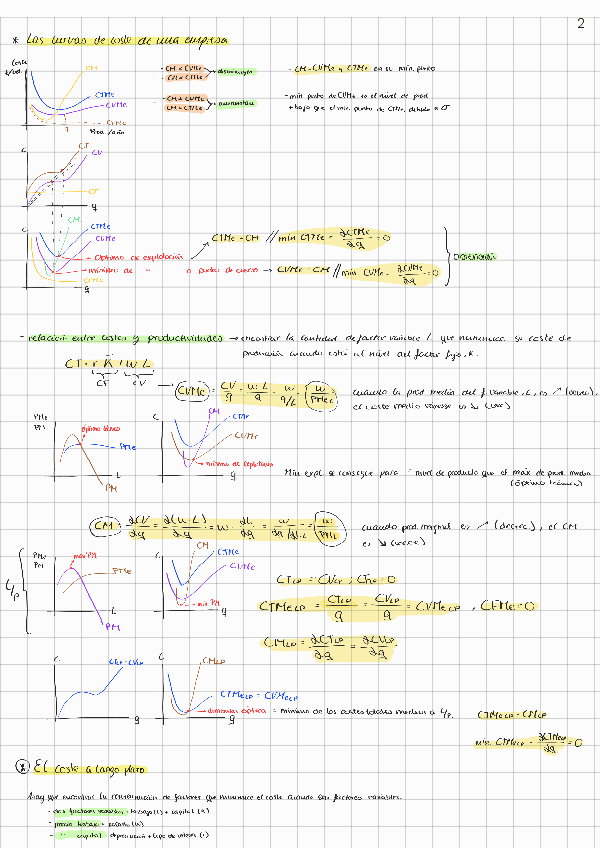 2
* Las curvas de coste de una empresa
Coste
CM
CTMe
CVMe
CFMe
- CM < CVMe
CM < CTMe → disminuyen
- CM > CVMe
CM > CTMe → aumentan
- CM = CVMe y CTMe en su mín. punto
- mín punto de CVMe es el nivel de prod.
+ bajo que el mín. punto de CTMe, debido a CF
C
CT
CV
CF
q
C
CM
CTMe
CVMe
CFMe
q
Óptimo de explotación
mínimo de " o punto de cierre
CTMe = CM // mín CTMe = ∂CTMe/∂q = 0
CVMe = CM // mín CVMe = ∂CVMe/∂q = 0
- relación entre costes y productividades → encontrar la cantidad de factor variable L que minimice su coste de
producción cuando está al nivel del factor fijo, K.
CT = r K + w L
CF CV
→ CVMe = CV/q = w·L/q = w/(q/L) = w/PMeL
cuando la prod media del f. variable, L, es ↗ (decrec),
el coste medio variable es ↘ (crec)
PMe
PM
óptimo técnico
PMe
L
PM
C
CM
CTMe
CVMe
mínimo de explotación
q
Mín expl. se consigue para = nivel de producto que el máx de prod. media
(óptimo técnico)
CM = ∂CV/∂q = ∂(w·L)/∂q = w · ∂L/∂q = w/(∂q/∂L) = w/PML
cuando prod. marginal es ↗ (decrec), el CM
es ↘ (crec)
C/P
PMe
PM
máx PM
PMe
L
PM
C
CM
CTMe
CVMe
mín PM
q
CTLP = CVLP, CFLP = 0
CTMeLP = CTLP/q = CVLP/q = CVMeLP, CFMe = 0
CMLP = ∂CTLP/∂q = ∂CVLP/∂q
C
CTLP = CVLP
q
C
CMLP
CTMeLP = CVMeLP
dimensión óptima = mínimo de los costes totales medios a L/P.
q
CTMeLP = CMLP
mín. CTMeLP = ∂CTMeLP/∂q = 0
* El coste a largo plazo
Hay que encontrar la combinación de factores que minimice el coste cuando son factores variables.
- dos factores variables: trabajo (L) + capital (K)
- precio trabajo = salario (w)
- " capital: depreciación + tipo de interés (r)